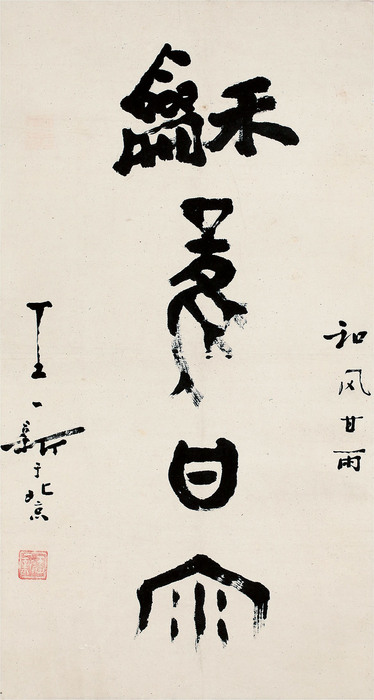 和风甘雨
龢風甘雨
王一新于北京